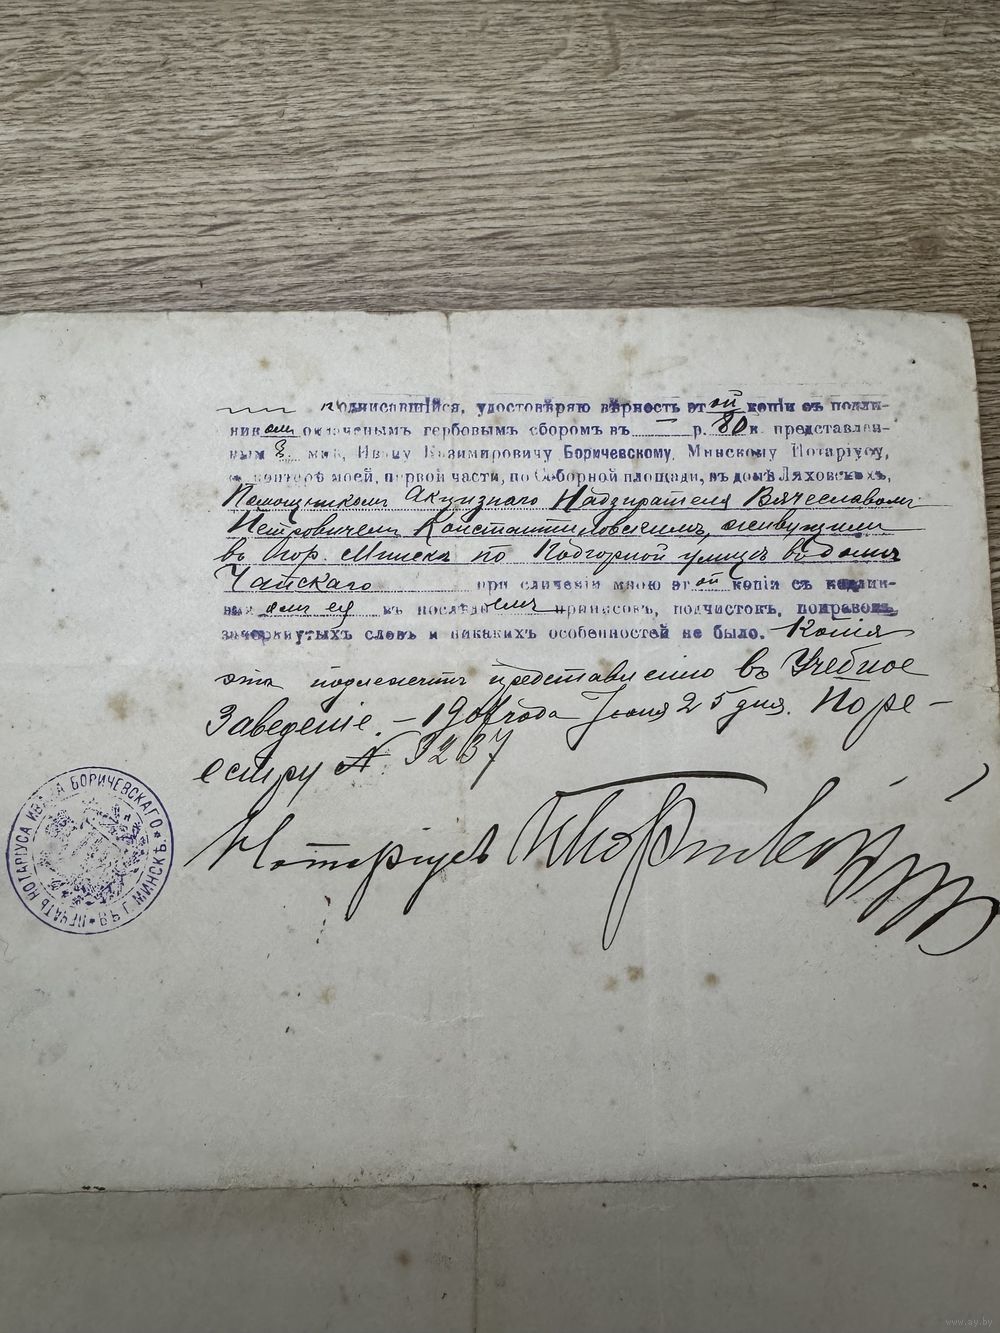 подписавшійся, удостовѣряю вѣрность этой копіи съ подлин-
никомъ оплаченымъ гербовымъ сборомъ въ — р. 80 к. представлен-
нымъ мнѣ, Ивану Казимировичу Боричевскому, Минскому Нотаріусу,
въ конторѣ моей, первой части, по Соборной площади, въ домѣ Ляховскихъ,
Помощникомъ Акцизнаго Надзирателя Вячеславомъ
Петровичемъ живущимъ
въ гор. Минскѣ по Подгорной улицѣ въ домѣ
Чапскаго при сличеніи мною этой копіи съ подлин-
нымъ ея въ послѣднемъ приписокъ, подчистокъ, поправокъ,
зачеркнутыхъ словъ и никакихъ особенностей не было. Копія
эта подлежитъ представленію въ Учебное
Заведеніе. – года Іюня 25 дня. По ре-
естру № 3237
Нотаріусъ
ПЕЧАТЬ НОТАРІУСА ИВАНА БОРИЧЕВСКАГО * ВЪ Г. МИНСКѢ *
www.ay.by